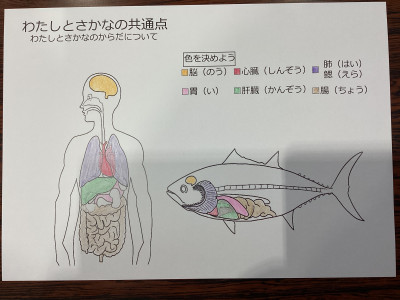 わたしとさかなの共通点
わたしとさかなのからだについて
色を決めよう
脳（のう） 心臓（しんぞう） 肺（はい）
鰓（えら）
胃（い） 肝臓（かんぞう） 腸（ちょう）